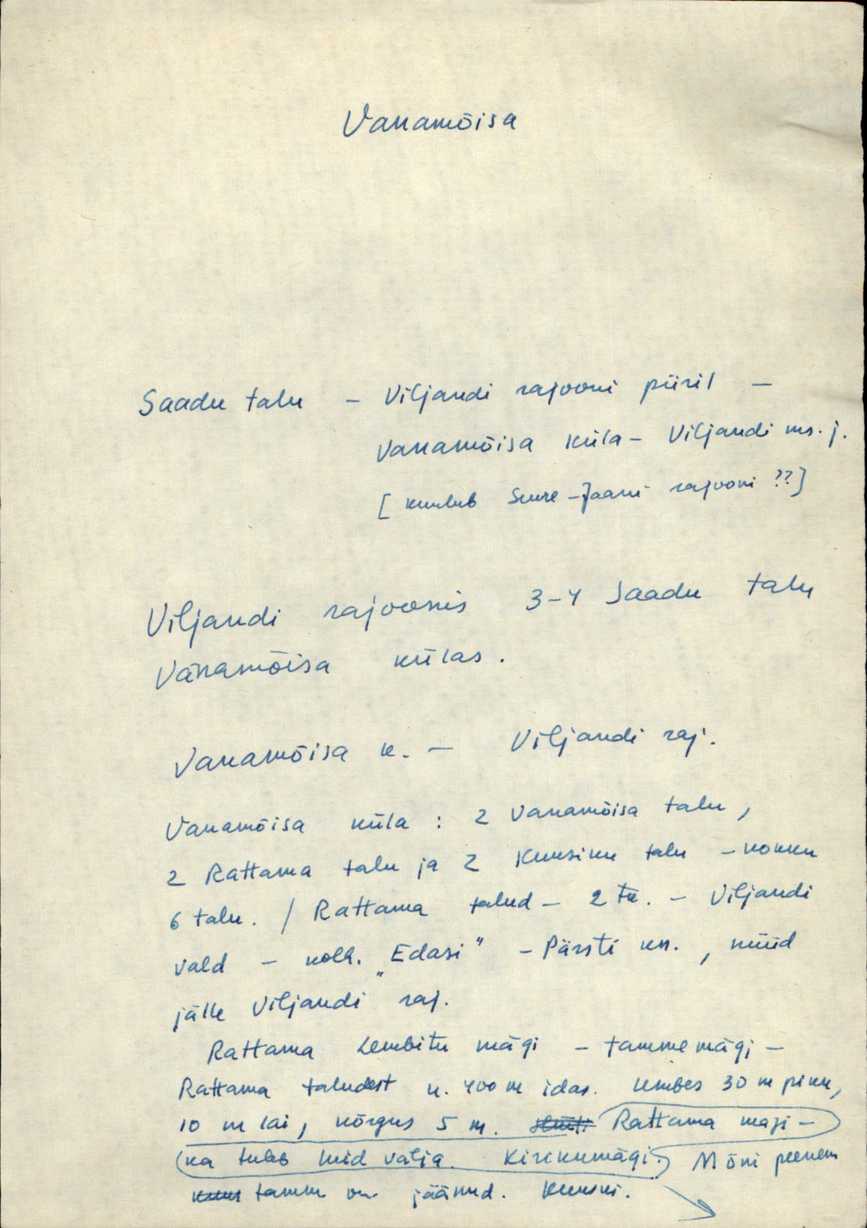 Vanamõisa
Saadu talu – Viljandi rajooni piiril –
Vanamõisa küla – Viljandi ms. j.
[kuulub Suure-Jaani rajooni ??]
Viljandi rajoonis 3-4 Saadu talu
Vanamõisa külas.
Vanamõisa k. – Viljandi raj.
Vanamõisa küla : 2 Vanamõisa talu,
2 Rattama talu ja 2 Kuusiku talu – kokku
6 talu. / Rattama talud – 2 tk. – Viljandi
vald – kolh. „Edasi" – Pärsti kn., nüüd
jälle Viljandi raj.
Rattama Lembitu mägi – tammemägi –
Rattama taludest u. 400 m idas. Umbes 30 m pikk,
10 m lai, kõrgus 5 m. Rattama mägi –
ka tuleb luid välja. Kirikumägi. Mõni peenem
tamm on jäänud. Kuuski.